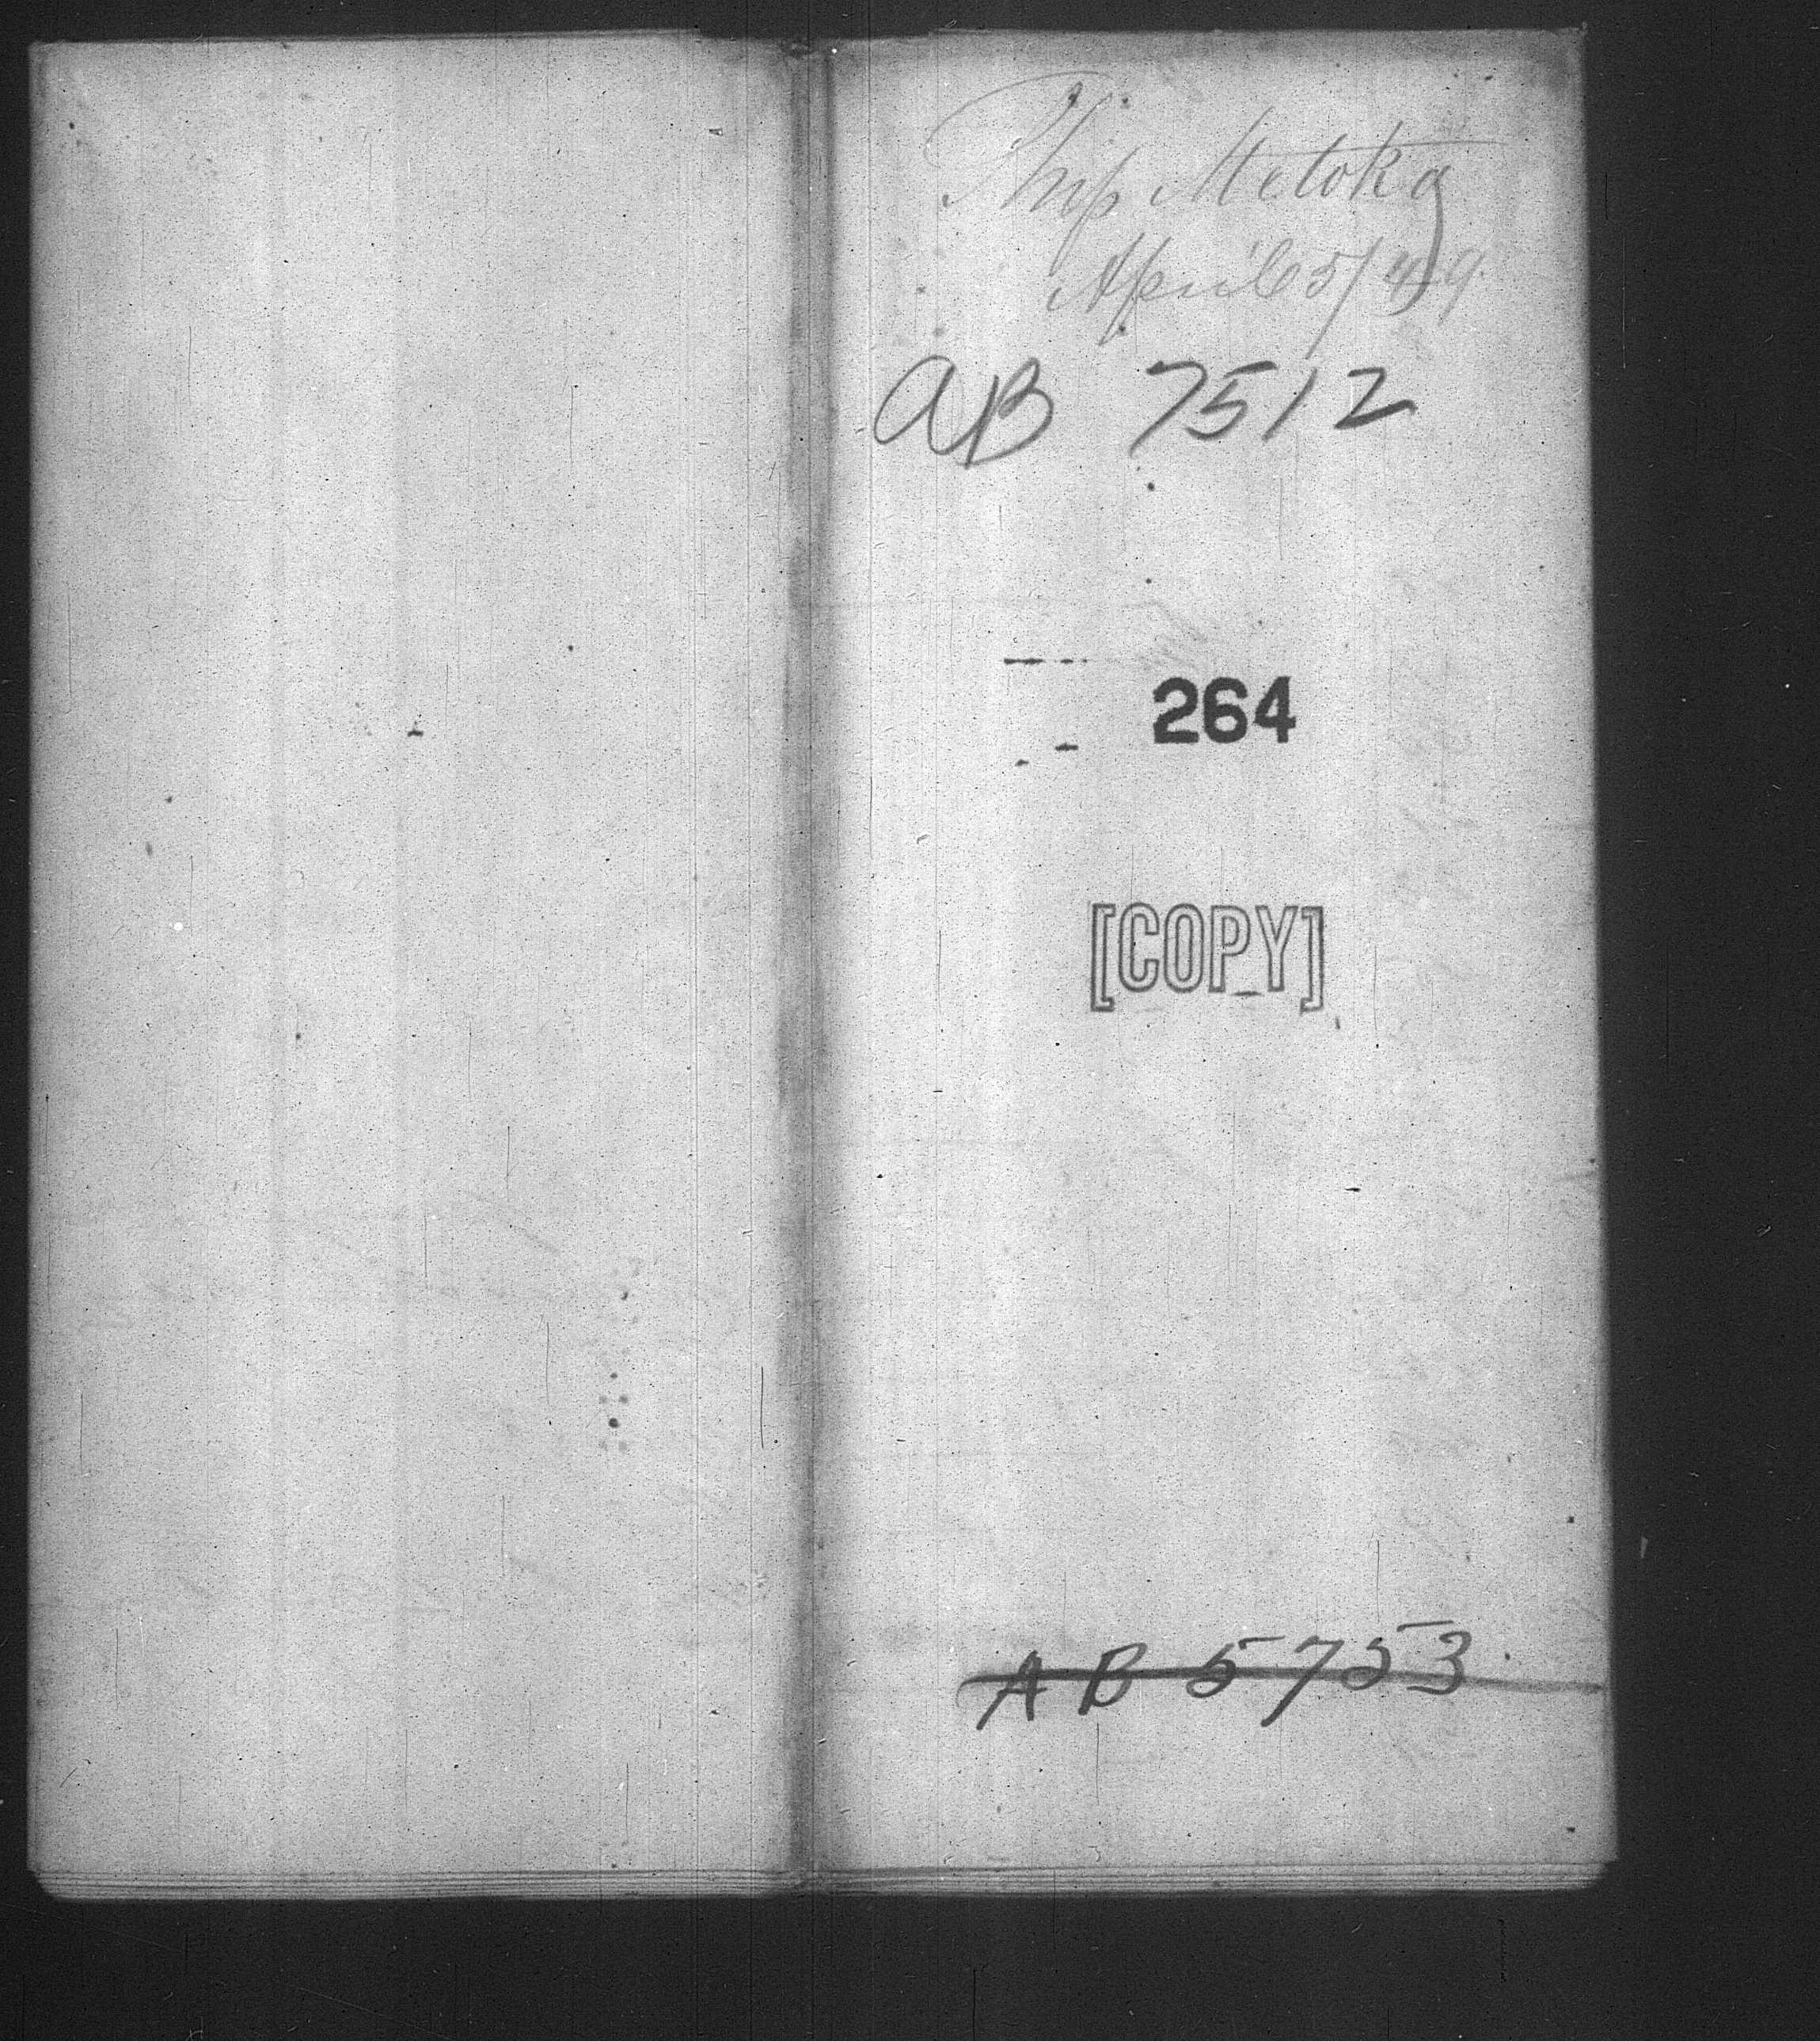 Ship Metoka
April 5/49
AB 7512
264
[COPY]
AB 5753